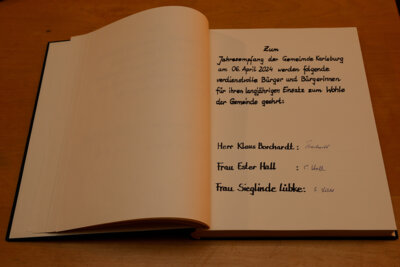 Zum
Jahresempfang der Gemeinde Karlsburg
am 06. April 2024 werden folgende
verdienstvolle Bürger und Bürgerinnen
für ihren langjährigen Einsatz zum Wohle
der Gemeinde geehrt:
Herr Klaus Borchardt:
Frau Ester Hall :
Frau Sieglinde Lübke: